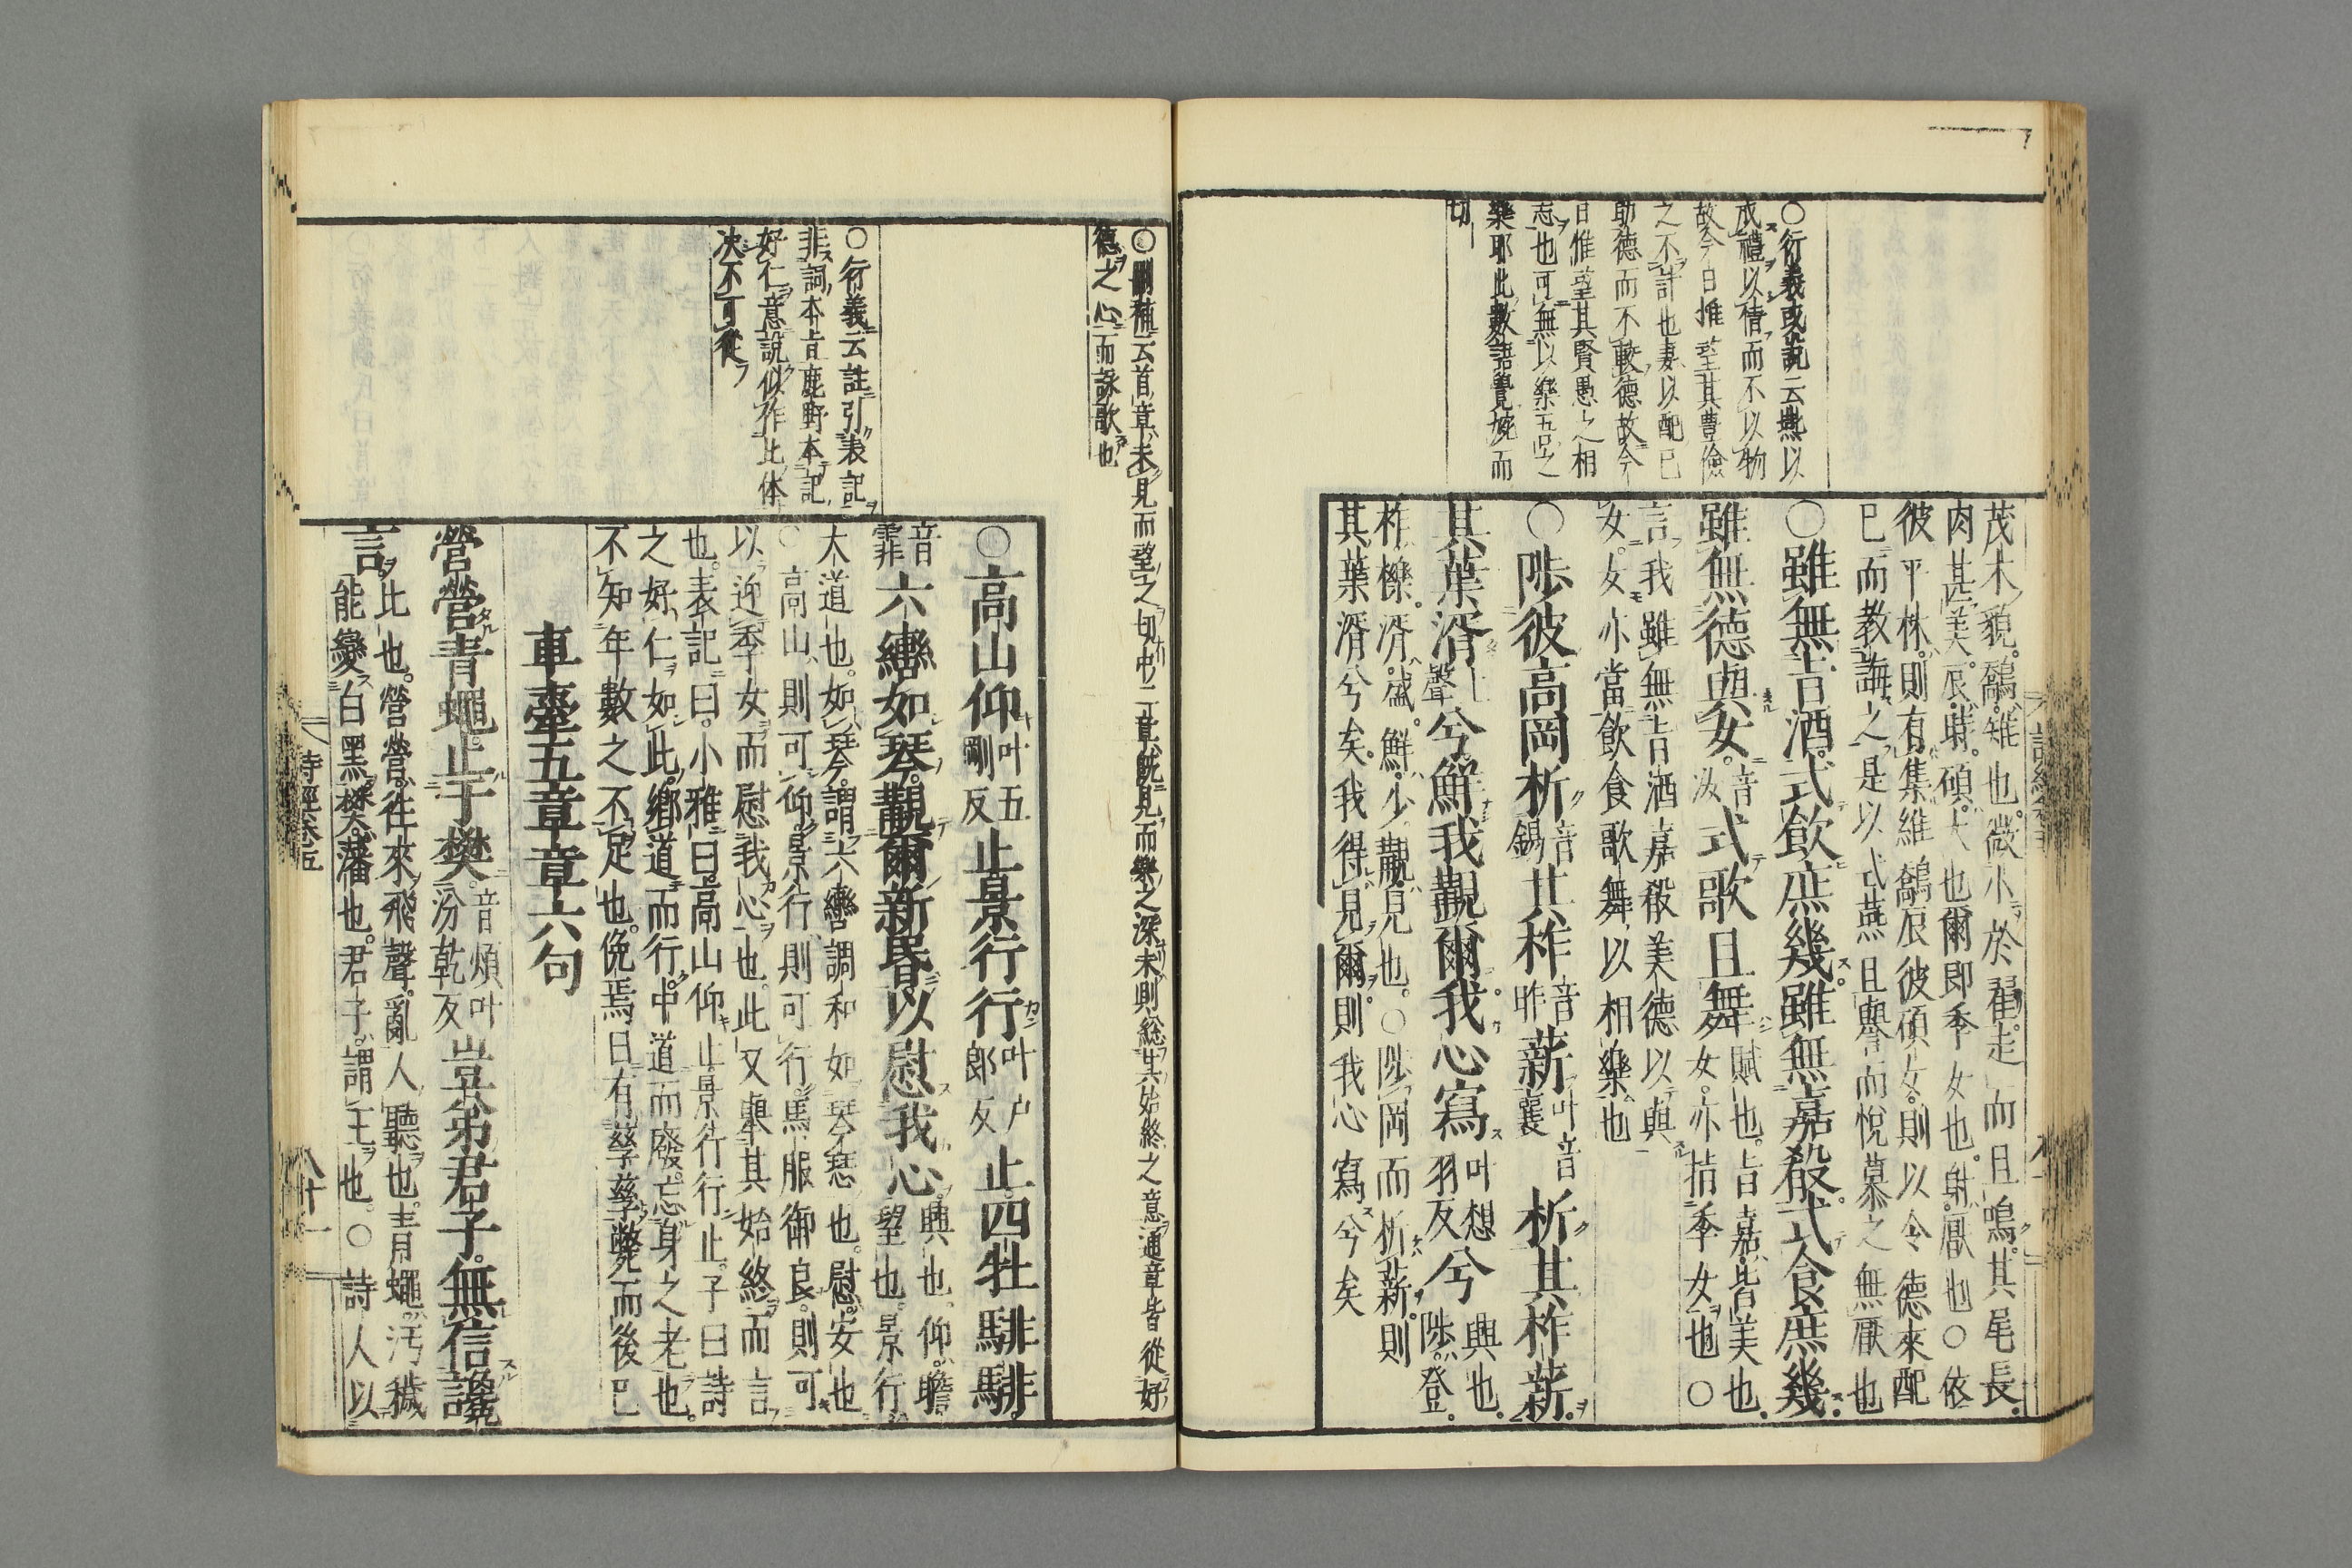 ○衍義或說云燕以
成禮以情而不以物
故今日惟望其豊儉
之不計也妻以配巳
助德而不較德故今
日惟望其賢愚之相
志也可無以樂五臣之
樂耶此數語覺婉而
切
茂木貌鷮雉也微小於翟走而且鳴其尾長
肉甚美辰時碩大也爾即季女也射厭也○依
彼平林則有集維鷮辰彼碩女則以令德來配
巳而教誨之是以式燕且譽而悅慕之無厭也
○雖無旨酒式飲庶幾雖無嘉殽式食庶幾
雖無德與女音汝式歌且舞賦也旨嘉皆美也女亦指季女也○
言我雖無旨酒嘉殽美德以與
女女亦當飲食歌舞以相樂也
○陟彼高岡析音錫其柞音昨薪叶音襄析其柞薪
其葉湑上聲兮鮮我覯爾我心寫叶想羽反兮興也陟登
柞櫟湑盛鮮少覯見也○陟岡而析薪則
其葉湑兮矣我得見爾則我心寫兮矣
○刪補云首章未見而望之切中二章旣見而樂之深末則総其始終之意通章皆從好
德之心而詠歌也
○衍義云註引表記
非詞本旨鹿野本記
好仁意說似作此体
决不可從
○高山仰叶五剛反止景行行叶户郎反止四牡騑騑
音霏六轡如琴覯爾新昏以慰我心興也仰瞻望也景行
大道也如琴謂六轡調和如琴瑟也慰安也
○高山則可仰景行則可行馬服御良則可
以迎季女而慰我心也此又舉其始終而言
也表記曰小雅曰高山仰止景行行止子曰詩
之好仁如此鄉道而行中道而廢忘身之老也
不知年數之不足也俛焉日有孳孳斃而後已
車舝五章章六句
營營青蠅止于樊音煩叶汾乾反豈弟君子無信讒
言比也營營往來飛聲亂人聽也青蠅汚穢
能變白黑樊藩也君子謂王也○詩人以
詩經卷五
八十一